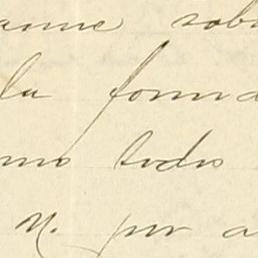 anme sob
la forma
mo todo
N. por a